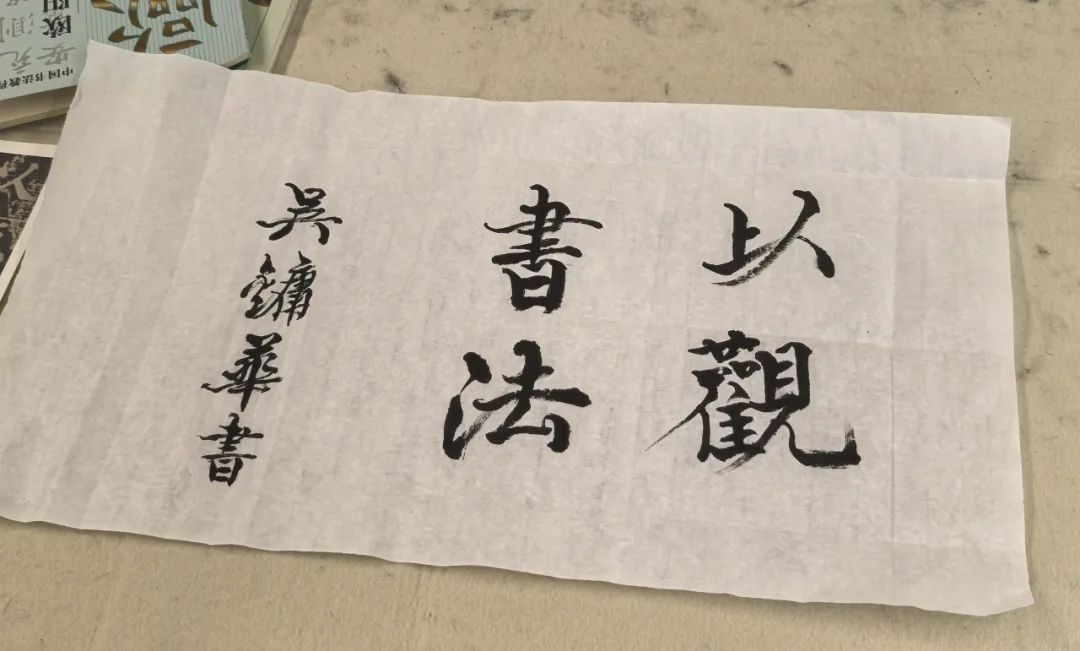 以觀
書法
吳鏞華書
中国书法教程
欧阳